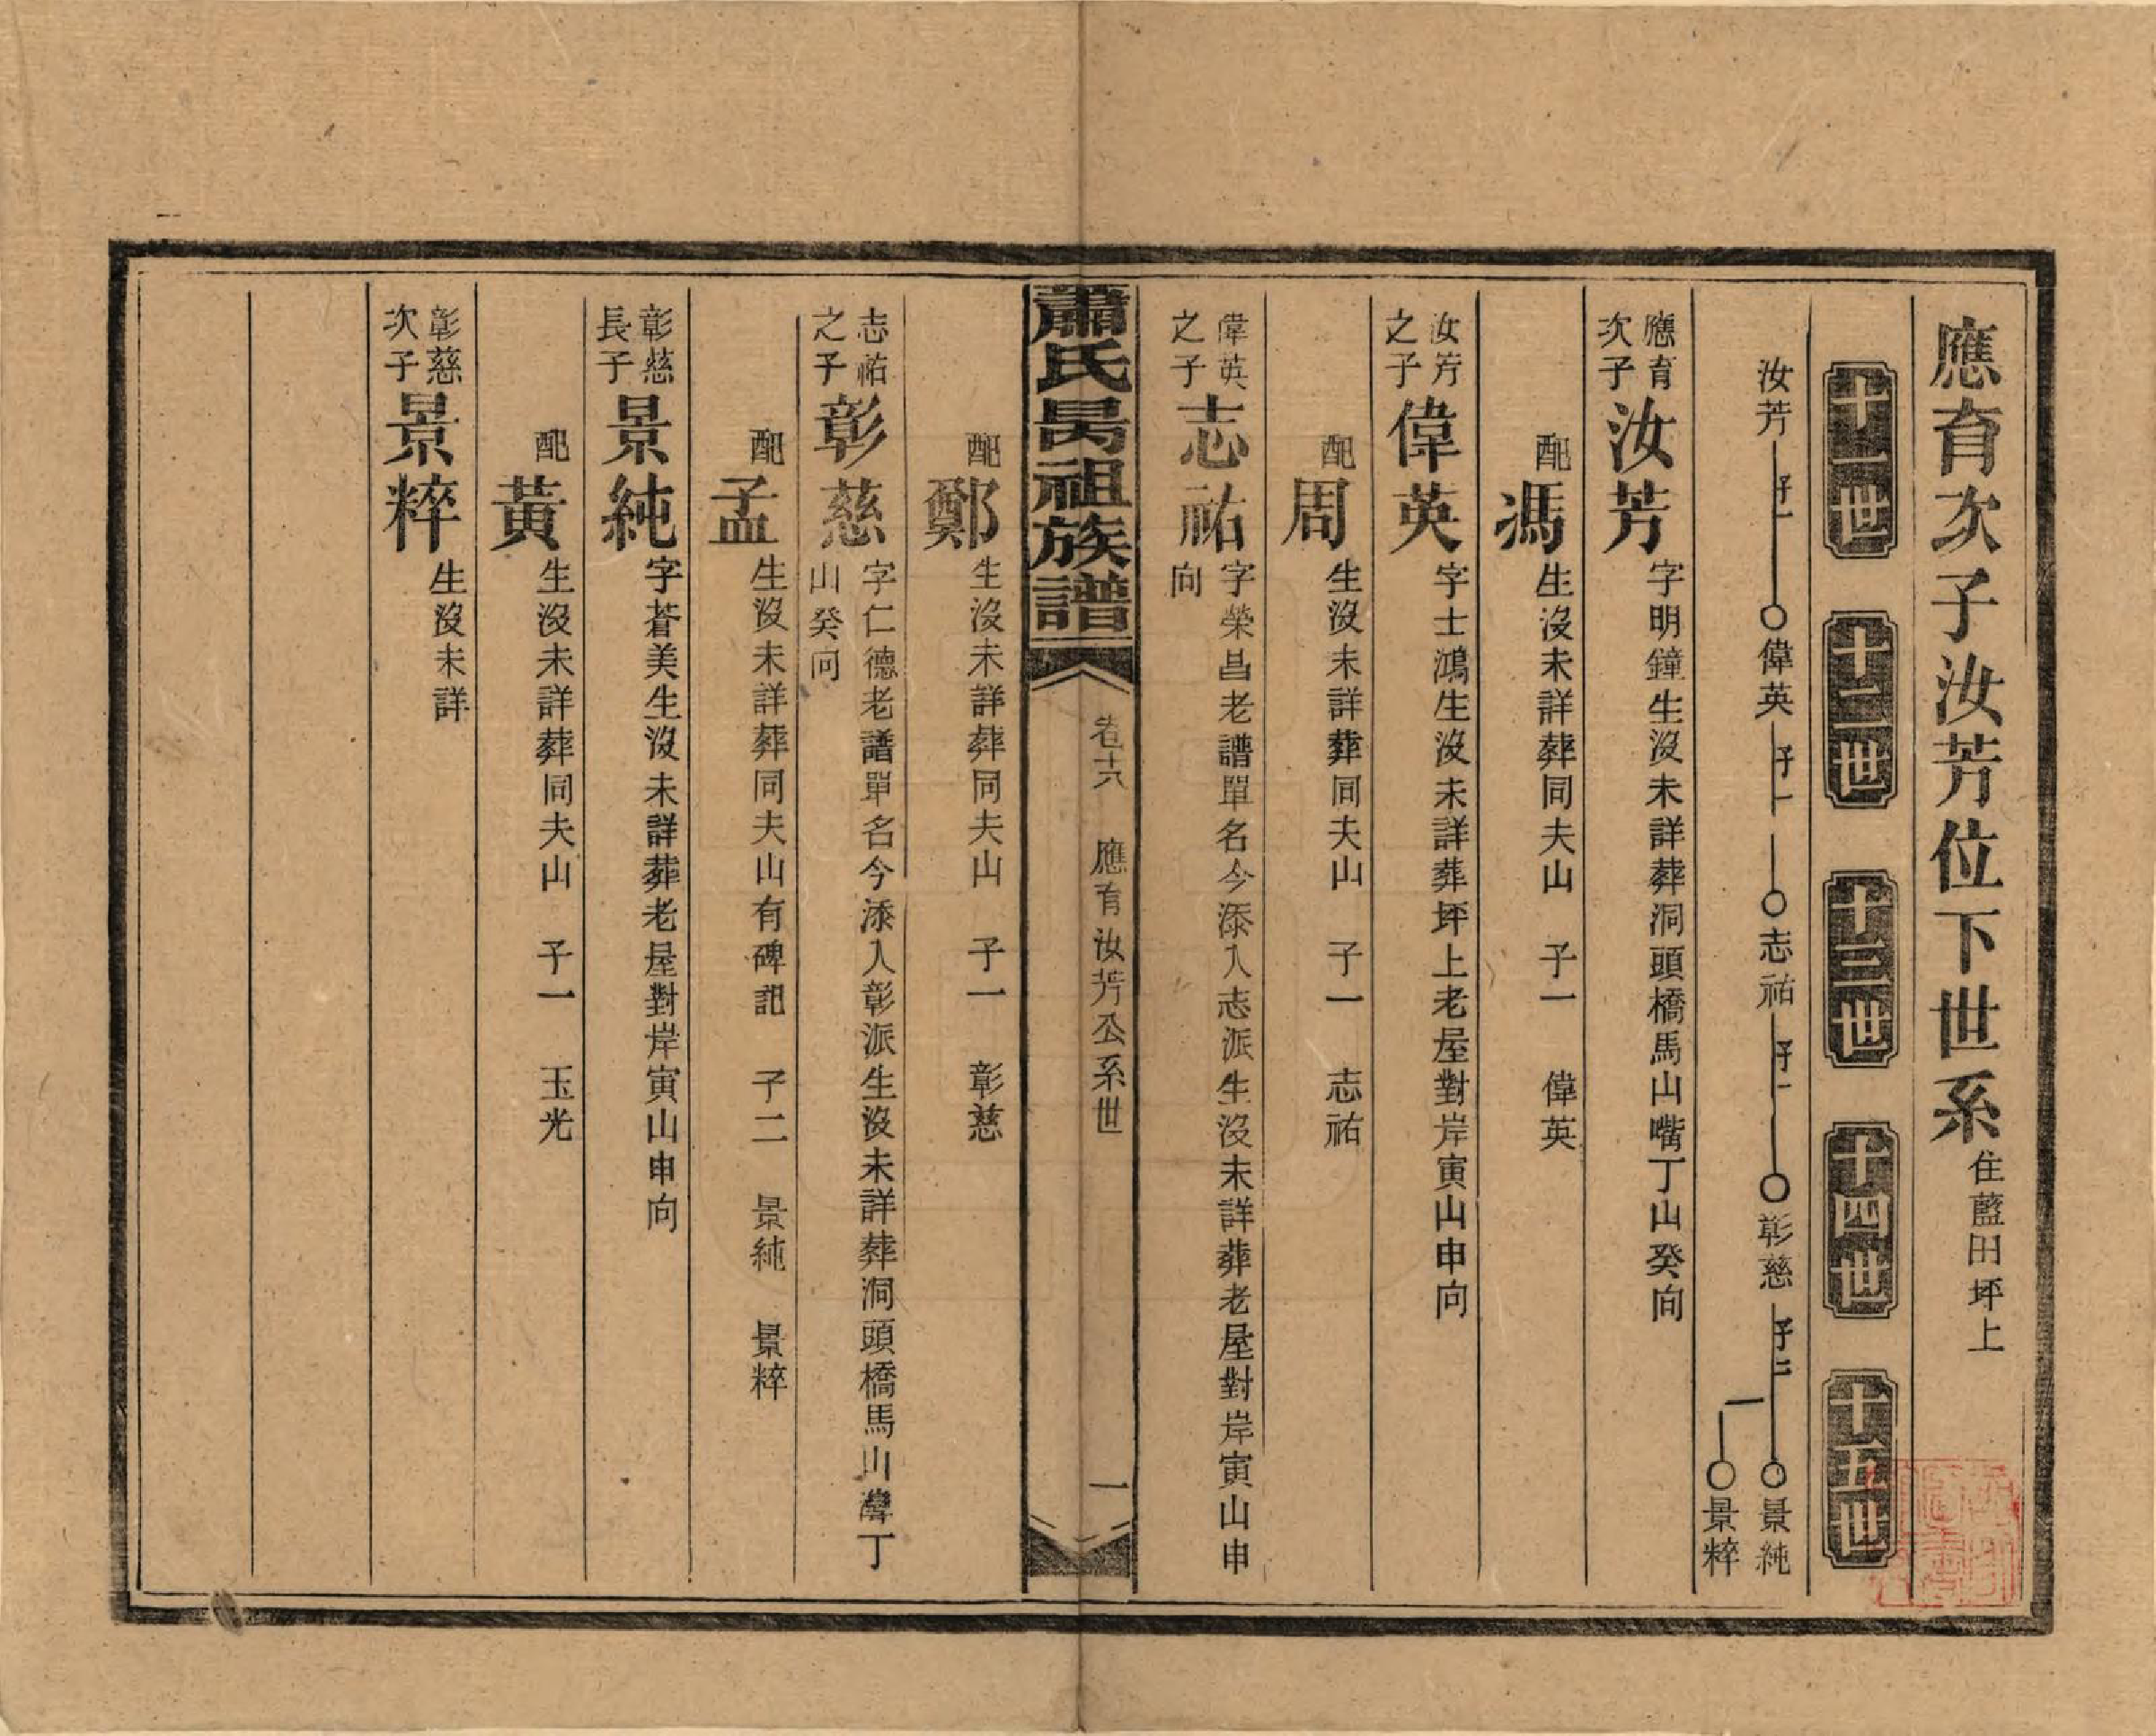 應育次子汝芳位下世系 住藍田坪上
十一世 十二世 十三世 十四世 十五世
汝芳 子一 偉英 子一 志祐 子一 彰慈 子二 景純
景粹
應育次子 汝芳 字明鐘生沒未詳葬洞頭橋馬山嘴丁山癸向
配馮 生沒未詳葬同夫山 子一 偉英
汝芳之子 偉英 字士鴻生沒未詳葬坪上老屋對岸寅山申向
配周 生沒未詳葬同夫山 子一 志祐
偉英之子 志祐 字榮昌老譜單名今添入志派生沒未詳葬老屋對岸寅山申
向
蕭氏昺祖族譜 卷十六 應育汝芳公系世 一
配鄭 生沒未詳葬同夫山 子一 彰慈
志祐之子 彰慈 字仁德老譜單名今添入彰派生沒未詳葬洞頭橋馬山灣丁
山癸向
配孟 生沒未詳葬同夫山有碑記 子二 景純 景粹
彰慈長子 景純 字蒼美生沒未詳葬老屋對岸寅山申向
配黃 生沒未詳葬同夫山 子一 玉光
彰慈次子 景粹 生沒未詳